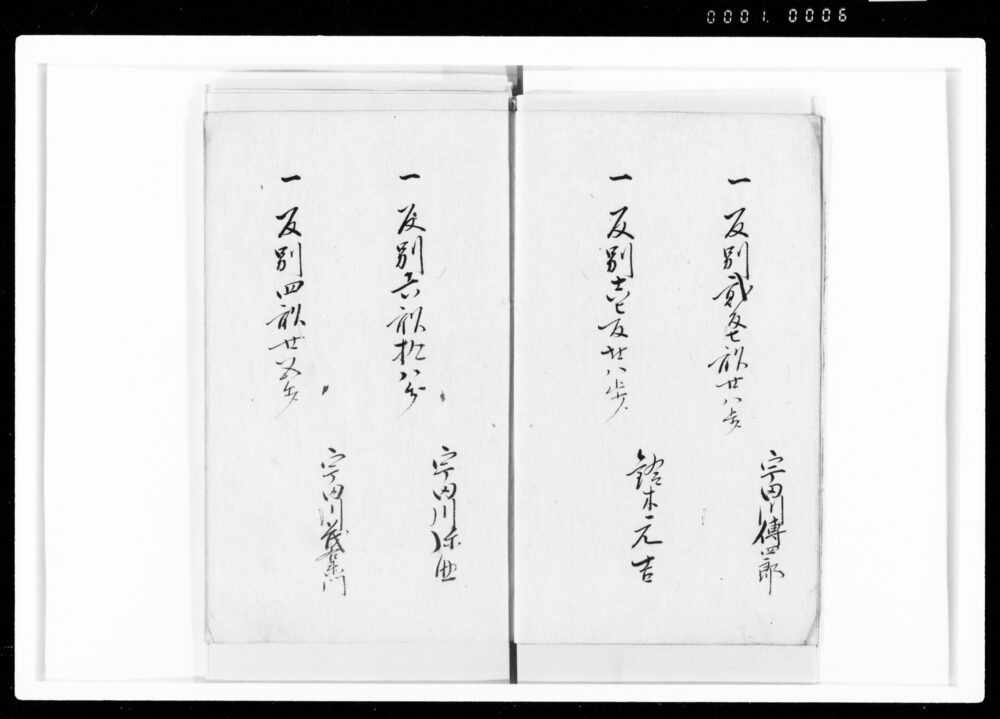 0001. 0006
一反別貳反七畝廿八歩
宇田川傳四郎
一反別六七反廿八歩
鈴木元吉
一反別六畝拾八歩
宇田川
一反別四畝廿五歩
宇田川茂右衛門